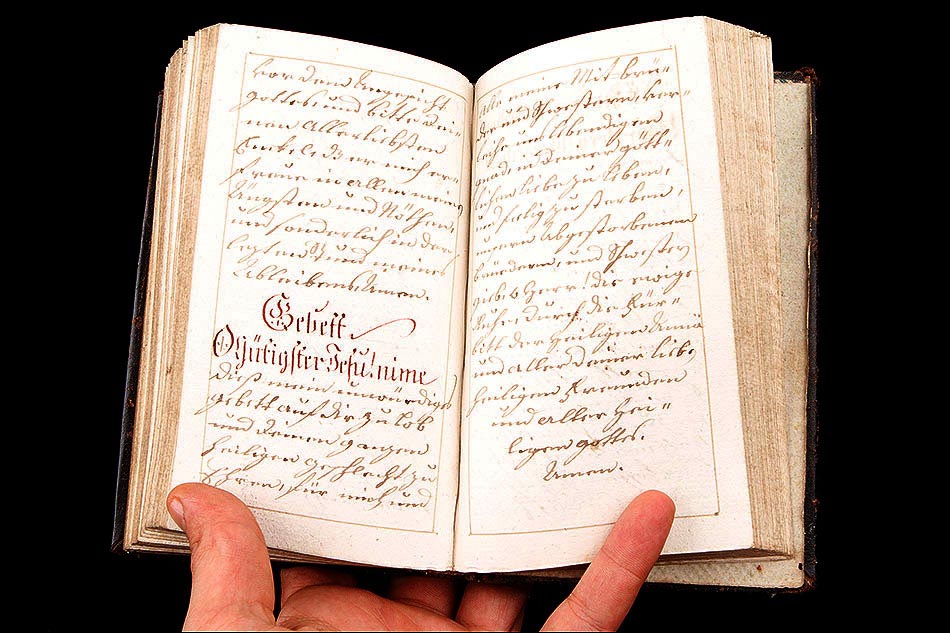 vor dem Angesicht
gottes, und bitte dei-
nen allerliebsten
Enkel, daß er mich er-
freue in allen meinen
Ängsten und Nöthen,
und sonderlich in der
lezten Stund meines
Ableibens, Amen.
Gebett.
O Gütigster Jesu! nime
diß mein unwürdiges
gebett auf dir zu lob
und deinem ganzen
heiligen geschlecht zu
Ehren, für mich und
alle meine Mit brü-
der und Schwestern, ver-
leihe uns lebendigen
gnad, in deiner gött-
lichen Liebe zu leben,
und selig zu sterben,
unsern abgestorbenen
bruedern, und Schwestern
gebe o Herr! die ewige
Ruhe durch die Für-
bitt der heiligen Anna
und aller deiner liebe
heiligen Freunden
und aller Hei-
ligen gottes.
Amen.